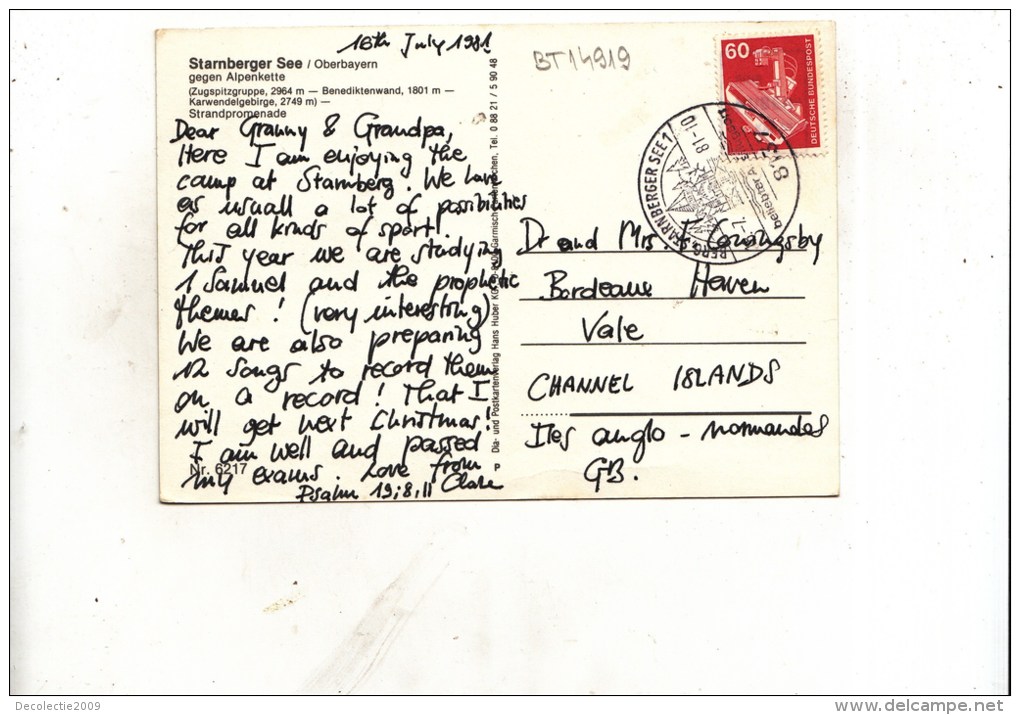 16th July 1981
BT14919
Starnberger See / Oberbayern
gegen Alpenkette
(Zugspitzgruppe, 2964 m — Benediktenwand, 1801 m —
Karwendelgebirge, 2749 m) —
Strandpromenade
Dear Granny & Grandpa,
Here I am enjoying the
camp at Starnberg. We have
as usuall a lot of possibilities
for all kinds of sport!
This year we are studying
1 Samuel and the prophetic
themes! (very interesting)
We are also preparing
12 songs to record them
on a record! That I
will get next Christmas!
I am well and passed
my exams. Love from
Clare
Psalm 19; 8, 11
Nr. 6217
Dia- und Postkartenverlag Hans Huber KG Garmisch Tel. 0 88 21 / 5 90 48
P
60
DEUTSCHE BUNDESPOST
8137
BERG, STARNBERGER SEE 1
81-10
beliebter
Dr and Mrs Coningsby
Bordeaux Haven
Vale
CHANNEL ISLANDS
Iles anglo - normandes
GB.
Decolectie2009
www.delcampe.net